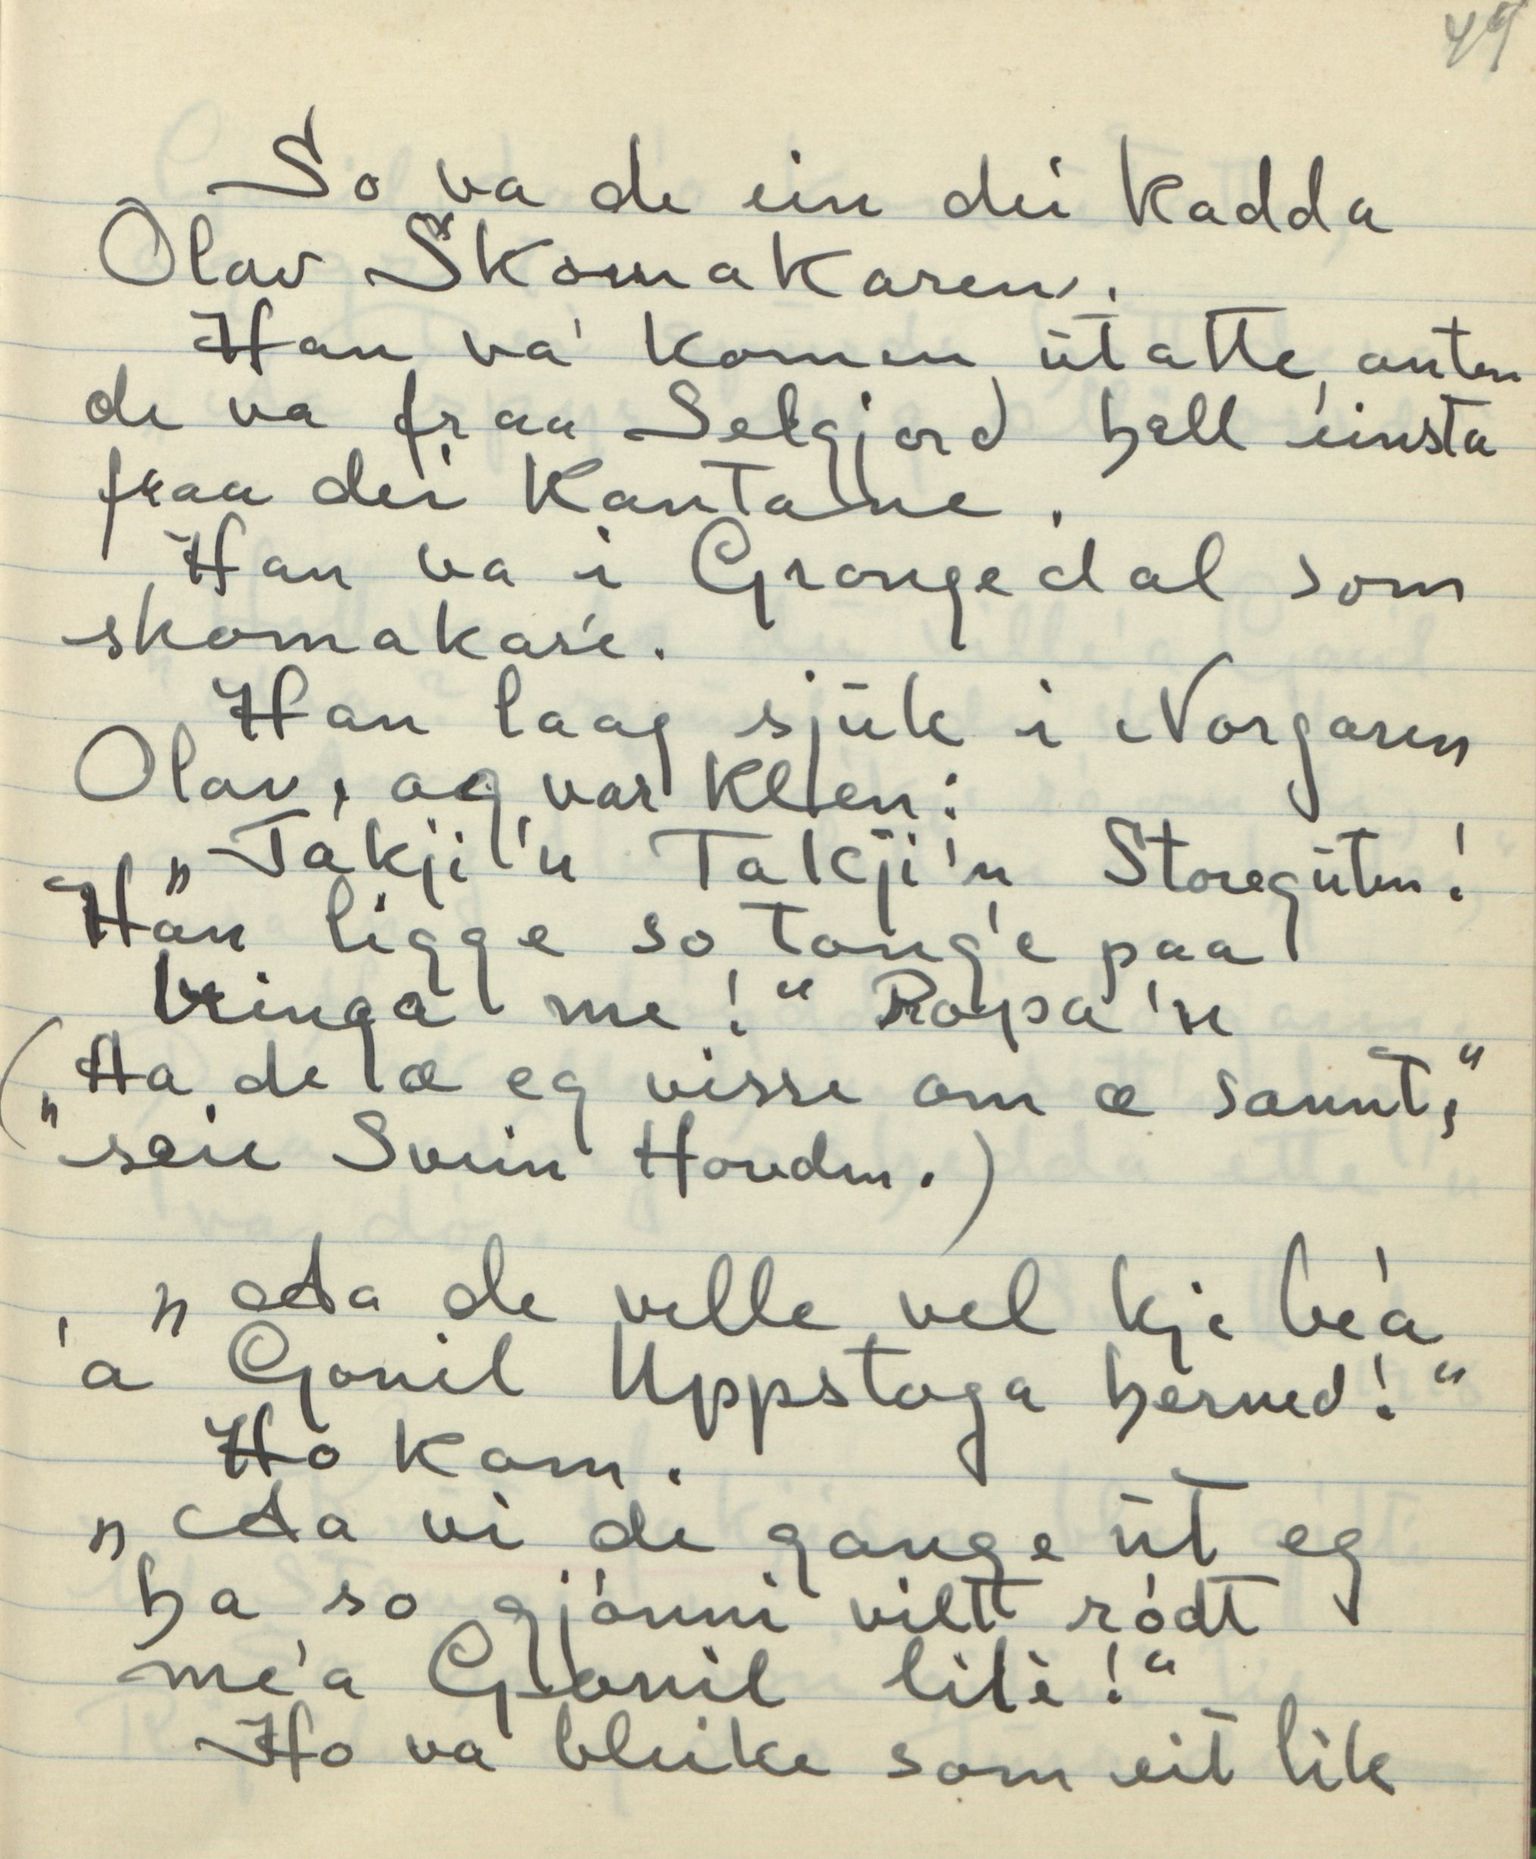 49
So va de ein dei kadda
Olav Skomakaren.
Han va' komen ut atte, anten
de va fraa Selgjord hell einsta
fraa dei Kantane.
Han va i Grongedal som
skomakare.
Han laag sjuk i Norgaren
Olav, og var klen:
„Takji'n Takji'n Storeguten!
Han ligge so tonge paa
bringa me!“ Roypa'n
(„Aa de æ eg visse om æ sannt,“
seie Svein Hovden.)
„Aa de ville vel kje be'a
'a Gonil Uppstoga herned!“
Ho kom.
„Aa vi di gange ut eg
ha so gjonni vilt rødt
me'a Gonil lite!“
Ho va bleike som eit lik